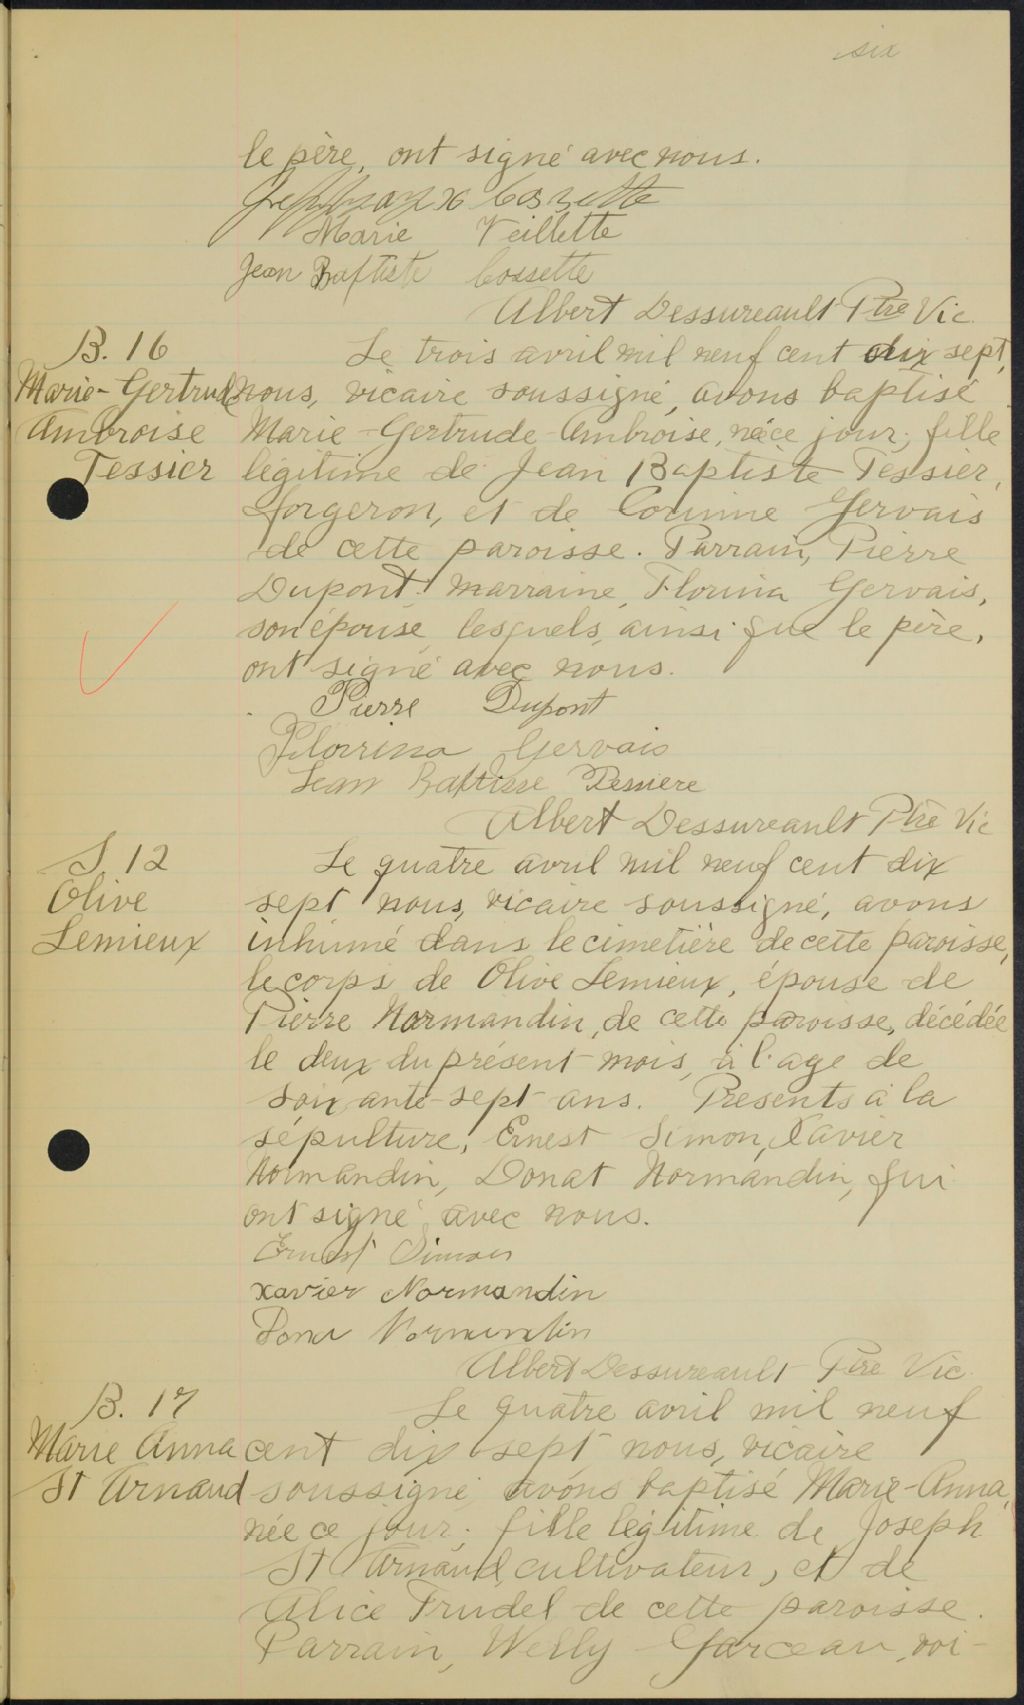 six
le père, ont signé avec nous.
Cossette
Marie Veillette
Jean Baptiste Cossette
Albert Dessureault Ptre Vic.
B. 16
Le trois avril mil neuf cent dix sept,
Marie-Gertrude
nous, vicaire soussigné, avons baptisé
Ambroise
Marie-Gertrude-Ambroise, née ce jour, fille
Tessier
légitime de Jean Baptiste Tessier,
forgeron, et de Corinne Gervais
de cette paroisse. Parrain, Pierre
Dupont; marraine, Florina Gervais,
son épouse, lesquels, ainsi que le père,
ont signé avec nous.
Pierre Dupont
Florina Gervais
Jean Baptisse
Albert Dessureault Ptre Vic
S. 12
Le quatre avril mil neuf cent dix
Olive
sept nous, vicaire soussigné, avons
Lemieux
inhumé dans le cimetière de cette paroisse,
le corps de Olive Lemieux, épouse de
Pierre Normandin, de cette paroisse, décédée
le deux du présent mois, à l'age de
soixante-sept ans. Presents à la
sépulture, Ernest Simon, Xavier
Normandin, Donat Normandin, qui
ont signé avec nous.
Ernest Simon
Xavier Normandin
Dona Normandin
Albert Dessureault Ptre Vic.
B. 17
Le quatre avril mil neuf
Marie Anna
cent dix sept nous, vicaire
St Arnaud
soussigné avons baptisé Marie-Anna,
née ce jour, fille légitime de Joseph
St Arnaud, cultivateur, et de
Alice Trudel de cette paroisse.
Parrain, Welly Garceau, voi-